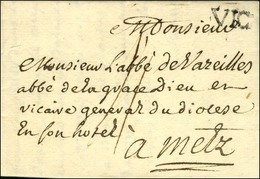 Monsieur
VIC
Monsieur L'abbé de Vareilles
abbé de la grace Dieu en
vicaire general du diocese
En son hotel
à Metz